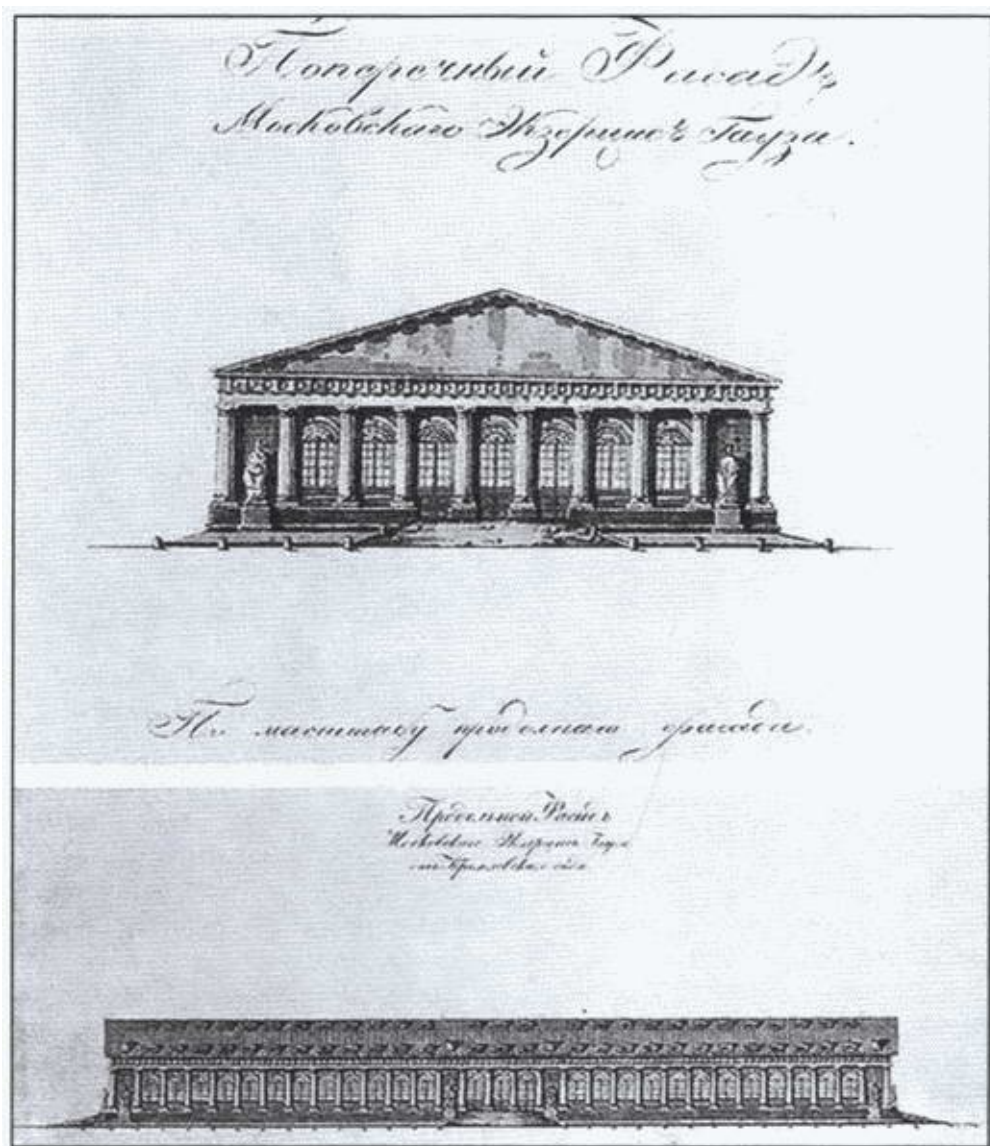 Поперечный Фасадъ
Московскаго Экзерцисъ Гауза.
По масштабу продольнаго фасада.
Продольной Фасадъ
Московскаго Экзерцисъ Гауза